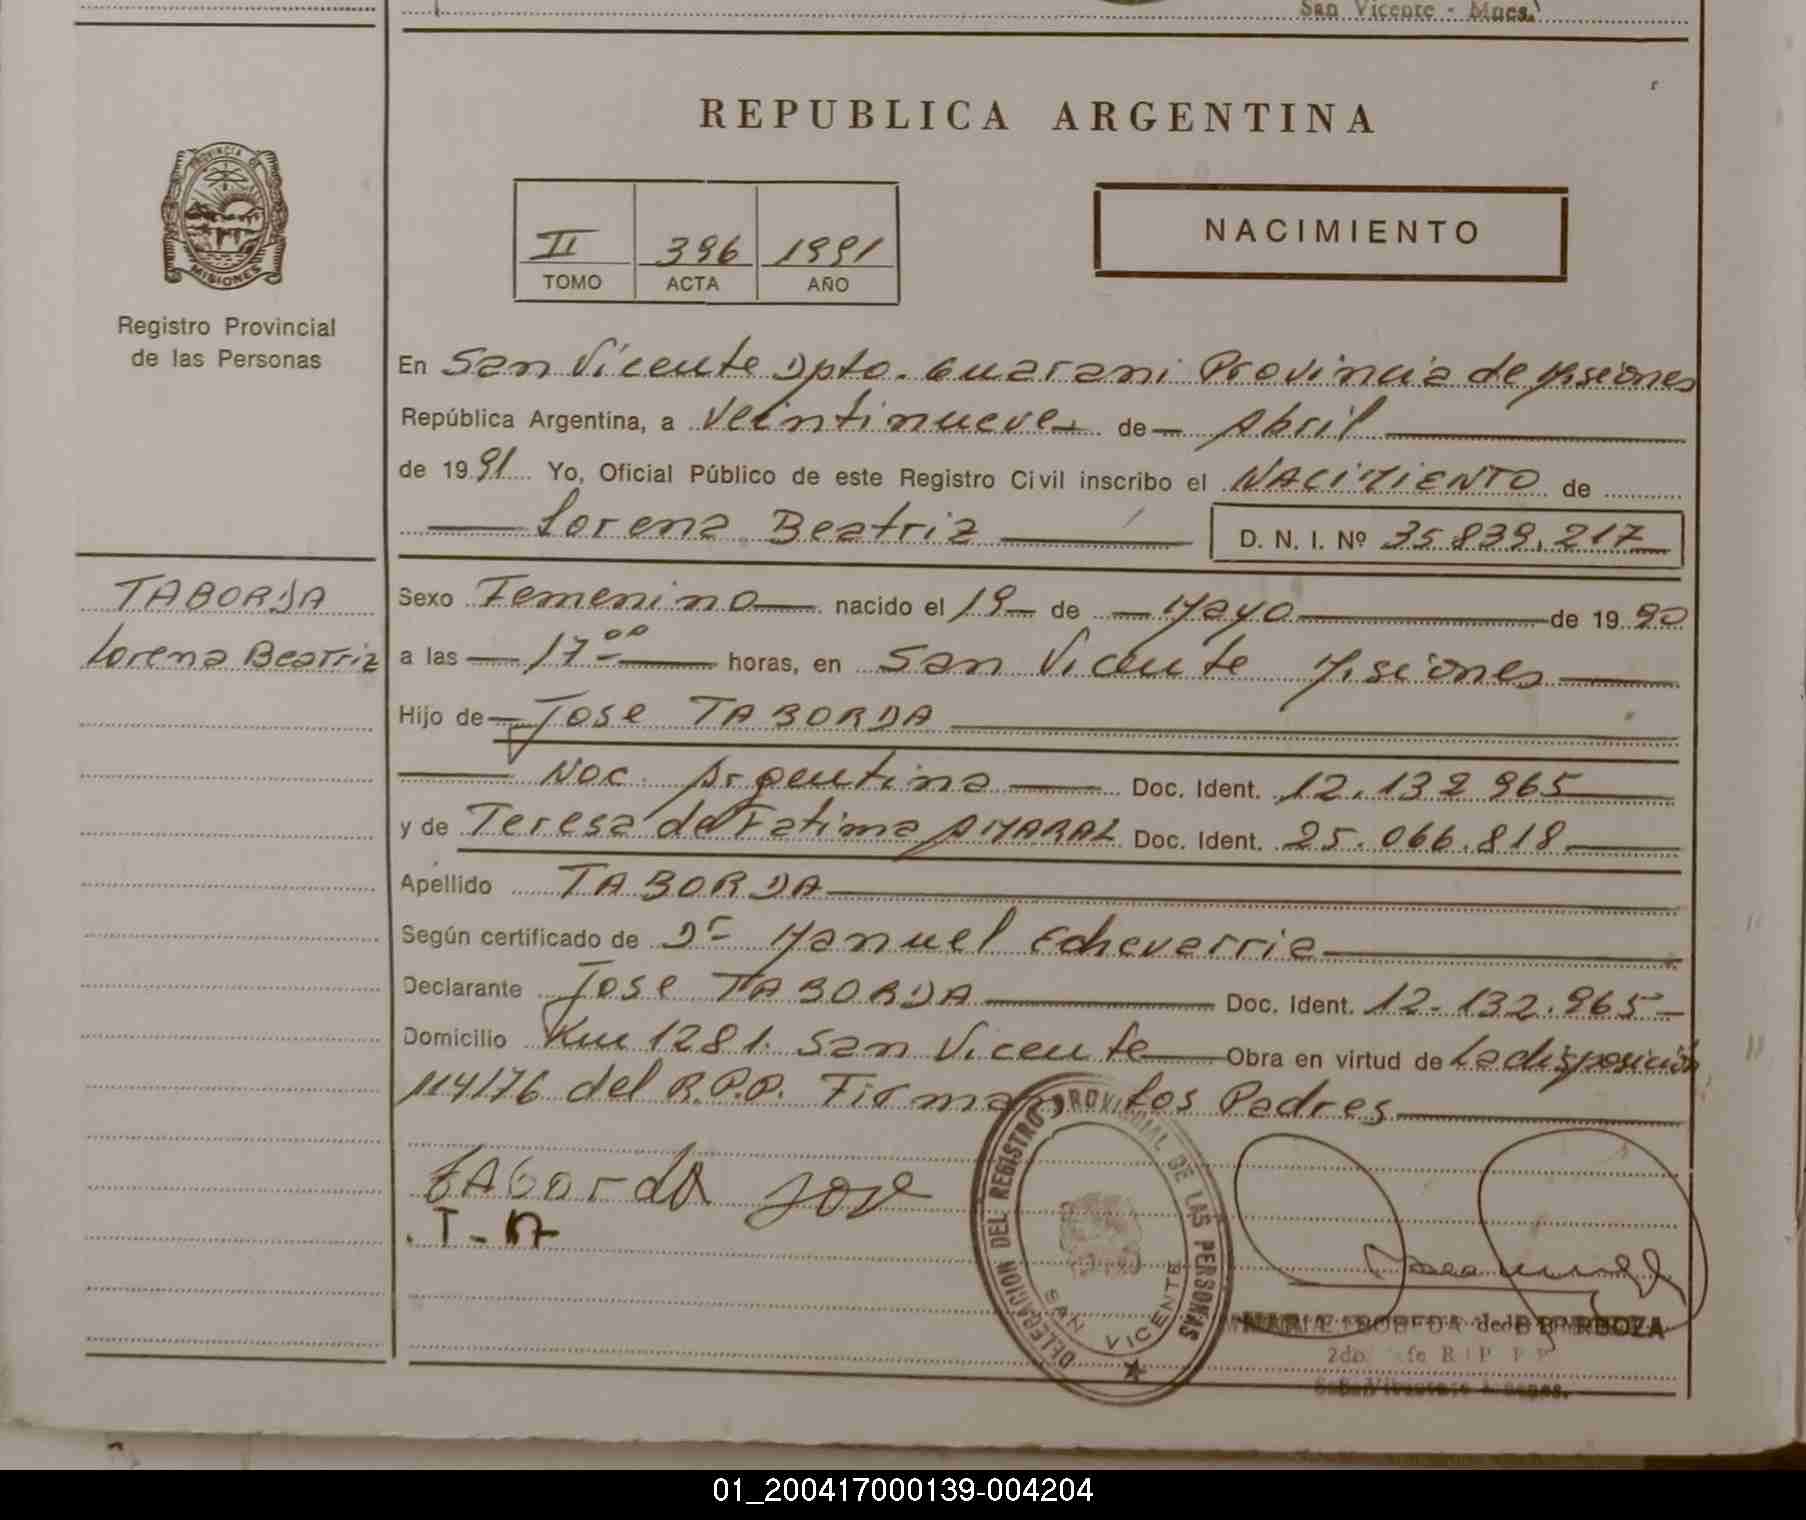 San Vicente - Mnes.
REPUBLICA ARGENTINA
PROVINCIA DE
MISIONES
Registro Provincial
de las Personas
II 396 1991
TOMO ACTA AÑO
NACIMIENTO
En San Vicente Dpto. Guarani Provincia de Misiones
República Argentina, a veintinueve de Abril
de 1991 Yo, Oficial Público de este Registro Civil inscribo el NACIMIENTO de
Lorena Beatriz D. N. I. Nº 35.839.217
TABORDA
Lorena Beatriz
Sexo Femenino nacido el 19 de Mayo de 1990
a las 17 00 horas, en San Vicente Misiones
Hijo de Jose TABORDA
Nac. Argentina Doc. Ident. 12.132.965
y de Teresa de Fatima AMARAL Doc. Ident. 25.066.818
Apellido TABORDA
Según certificado de Dr Manuel Echeverria
Declarante Jose TABORDA Doc. Ident. 12.132.965
Domicilio Km 1281. San Vicente Obra en virtud de La disposición
114/76 del R.P.P. Firman los Padres
tAborda Jose
DELEGACION DEL REGISTRO PROVINCIAL DE LAS PERSONAS
SAN VICENTE
MARIA de BARBOZA
01_200417000139-004204